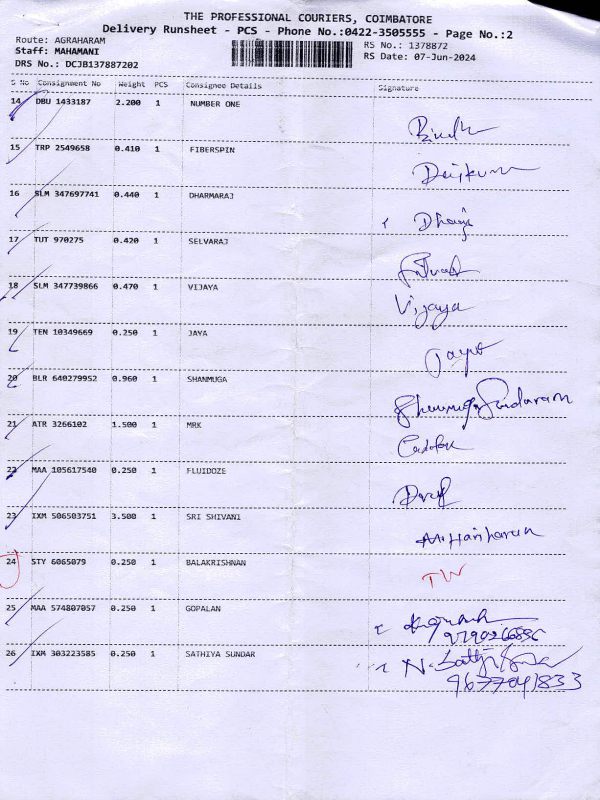 THE PROFESSIONAL COURIERS, COIMBATORE
Delivery Runsheet - PCS - Phone No.:0422-3505555 - Page No.:2
Route: AGRAHARAM RS No.: 1378872
Staff: MAHAMANI RS Date: 07-Jun-2024
DRS No.: DCJB137887202
S No Consignment No Weight PCS Consignee Details Signature
14 DBU 1433187 2.200 1 NUMBER ONE
15 TRP 2549658 0.410 1 FIBERSPIN
16 SLM 347697741 0.440 1 DHARMARAJ
17 TUT 970275 0.420 1 SELVARAJ
18 SLM 347739866 0.470 1 VIJAYA Vijaya
19 TEN 10349669 0.250 1 JAYA
20 BLR 640279952 0.960 1 SHANMUGA Shanmuga Sundaram
21 ATR 3266102 1.500 1 MRK
22 MAA 105617540 0.250 1 FLUIDOZE
23 IXM 506503751 3.500 1 SRI SHIVANI M. Hariharan
24 STY 6065079 0.250 1 BALAKRISHNAN TW
25 MAA 574807057 0.250 1 GOPALAN
26 IXM 303223585 0.250 1 SATHIYA SUNDAR
9677041833